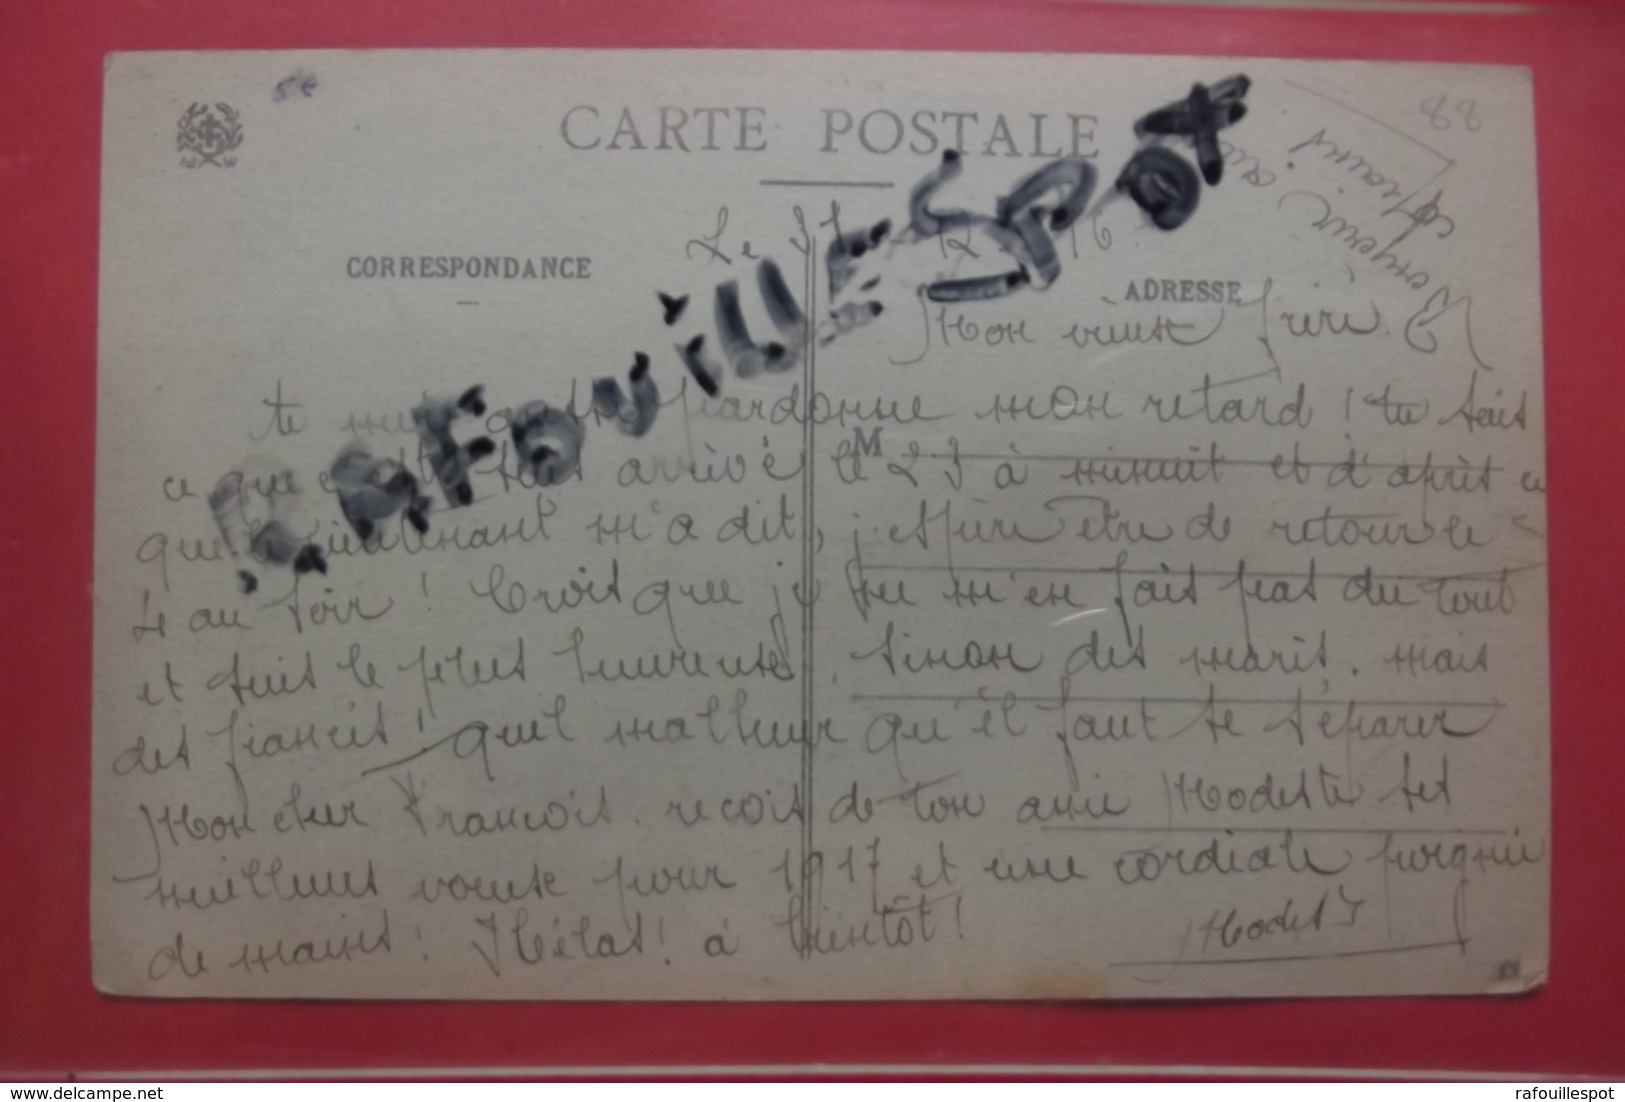 5€
88
CARTE POSTALE
Le 31 12 - 16
CORRESPONDANCE
ADRESSE
Mon vieux frère.
pardonne mon retard ! tu sais
ce que arrivé le 23 à minuit et d'après ce
M
que lieutenant m'a dit, être de retour le
4 au soir ! Crois que je ne m'en fais pas du tout
et suis le plus heureuse, sinon des maris. mais
des fiancés ! quel malheur qu'il faut se séparer
Mon cher François. reçois de ton amie Modeste ses
meilleurs voeuse pour 1917 et une cordiale poignée
de mains ! Hélas ! à bientôt !
Modeste
RAFOUILLESPOT
www.delcampe.net
rafouillespot